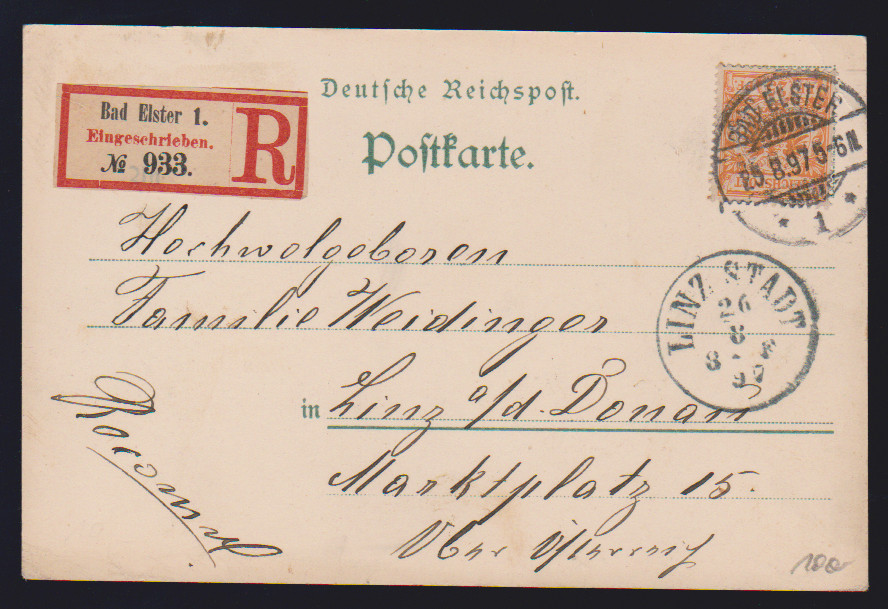 Deutsche Reichspost.
Postkarte.
Bad Elster 1.
Eingeschrieben.
№ 933.
R
BAD ELSTER
25.8.97 5-6N.
* 1 *
Hochwolgeboren
Familie Weidinger
in Linz a/d. Donau
Marktplatz 15.
Ober Österreich
LINZ STADT
26
8
97
100